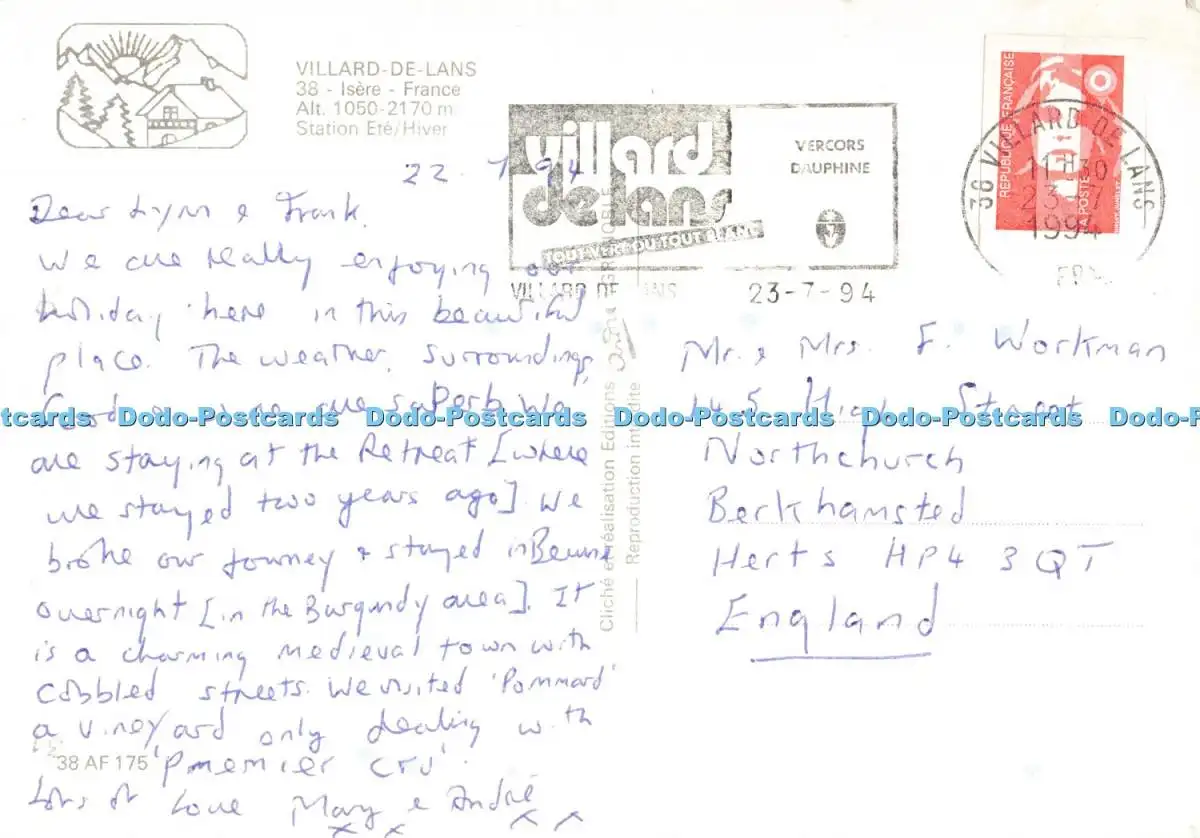 VILLARD-DE-LANS
38 - Isère - France
Alt. 1050-2170 m
Station Eté/Hiver
villard
de lans
TOUT VERT OU TOUT BLANC
VERCORS
DAUPHINE
VILLARD DE LANS
23-7-94
REPUBLIQUE FRANÇAISE
LA POSTE
38 VILLARD DE LANS
11H30
23-7
1994
22. 7 94
Dear Lynn & Frank.
We are really enjoying our
holiday here in this beautiful
place. The weather, surroundings,
food & wine are superb. We
are staying at the Retreat [where
we stayed two years ago]. We
broke our journey & stayed in Beaune
overnight [in the Burgundy area]. It
is a charming medieval town with
cobbled streets. We visited 'Pommard'
a vineyard only dealing with
'Premier cru'.
Lots of Love Mary & André
x x x x
38 AF 175
Cliché et réalisation Editions André GRENOBLE
Reproduction interdite
Mr. & Mrs. F. Workman
High Street
Northchurch
Berkhamsted
Herts HP4 3QT
England
Dodo-Postcards Dodo-Postcards Dodo-Postcards Dodo-Postcards